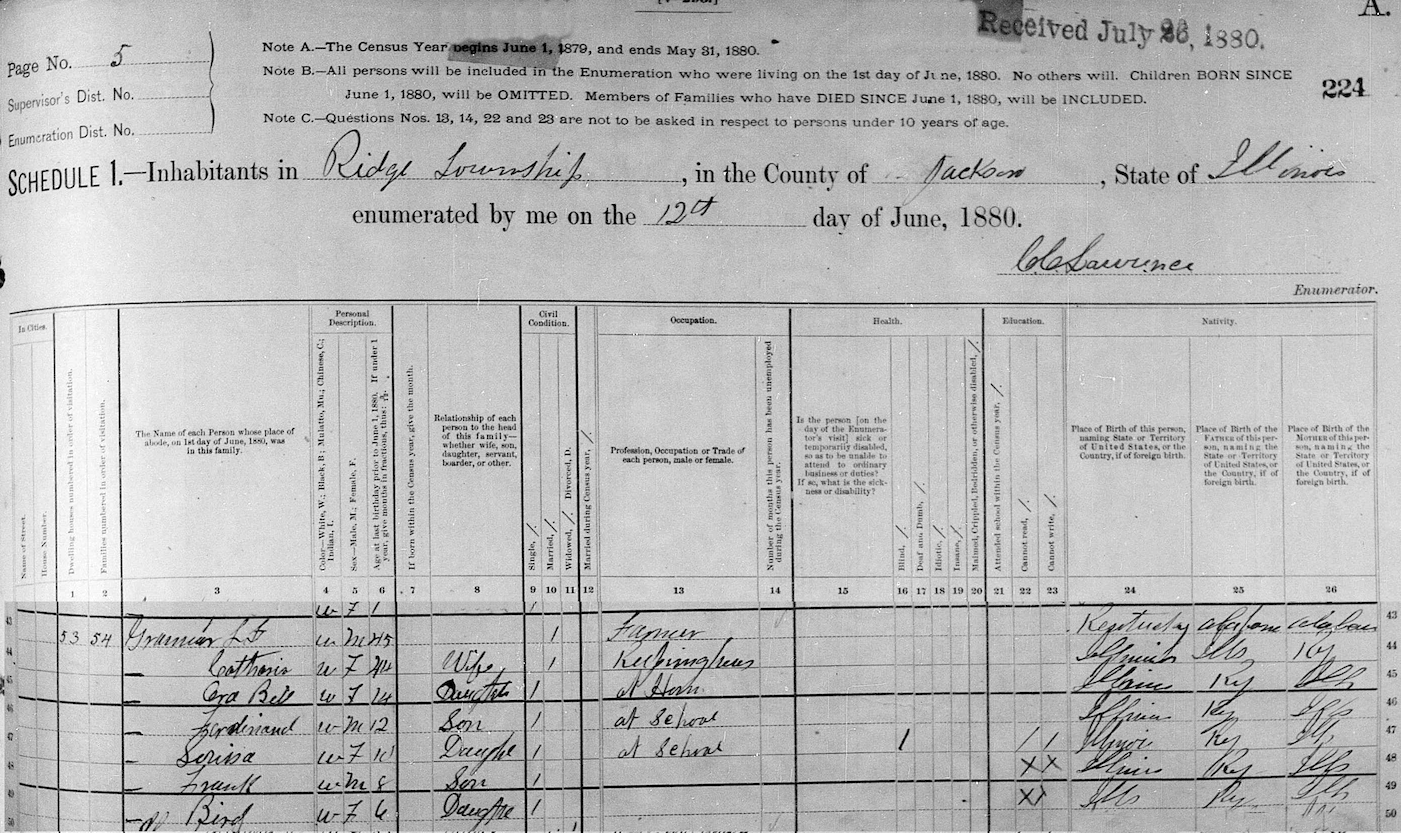 A.
Received July 26, 1880.
Page No. 5
Supervisor's Dist. No.
Enumeration Dist. No.
Note A.—The Census Year begins June 1, 1879, and ends May 31, 1880.
Note B.—All persons will be included in the Enumeration who were living on the 1st day of June, 1880. No others will. Children BORN SINCE
June 1, 1880, will be OMITTED. Members of Families who have DIED SINCE June 1, 1880, will be INCLUDED.
Note C.—Questions Nos. 13, 14, 22 and 23 are not to be asked in respect to persons under 10 years of age.
224
SCHEDULE 1.—Inhabitants in Ridge Township, in the County of Jackson, State of Illinois
enumerated by me on the 12th day of June, 1880.
CC Lawrence
Enumerator.
In Cities.
Name of Street.
House Number.
Dwelling houses numbered in order of visitation.
Families numbered in order of visitation.
The Name of each Person whose place of abode, on 1st day of June, 1880, was in this family.
Personal Description.
Color—White, W.; Black, B.; Mulatto, Mu.; Chinese, C.; Indian, I.
Sex—Male, M.; Female, F.
Age at last birthday prior to June 1, 1880. If under 1 year, give months in fractions, thus:
If born within the Census year, give the month.
Relationship of each person to the head of this family—whether wife, son, daughter, servant, boarder, or other.
Civil Condition.
Single, /.
Married, /.
Widowed, /. Divorced, D.
Married during Census year, /.
Occupation.
Profession, Occupation or Trade of each person, male or female.
Number of months this person has been unemployed during the Census year.
Health.
Is the person [on the day of the Enumerator's visit] sick or temporarily disabled, so as to be unable to attend to ordinary business or duties? If so, what is the sickness or disability?
Blind, /.
Deaf and Dumb, /.
Idiotic, /.
Insane, /.
Maimed, Crippled, Bedridden, or otherwise disabled, /.
Education.
Attended school within the Census year, /.
Cannot read, /.
Cannot write, /.
Nativity.
Place of Birth of this person, naming State or Territory of United States, or the Country, if of foreign birth.
Place of Birth of the FATHER of this person, naming the State or Territory of United States, or the Country, if of foreign birth.
Place of Birth of the MOTHER of this person, naming the State or Territory of United States, or the Country, if of foreign birth.
1 2 3 4 5 6 7 8 9 10 11 12 13 14 15 16 17 18 19 20 21 22 23 24 25 26
43 W F 1 1 43
44 53 54 L F W M 45 1 Farmer Kentucky 44
45 W F 44 Wife 1 Illinois Ills Ky 45
46 Bell W F 14 Daughter 1 at Home Ky 46
47 Ferdinand W M 12 Son 1 at School Ky 47
48 W F 10 1 at School 1 / / Ky 48
49 Frank W M 8 Son 1 X X Ky 49
50 Bird W F 6 1 Ills Ky 50